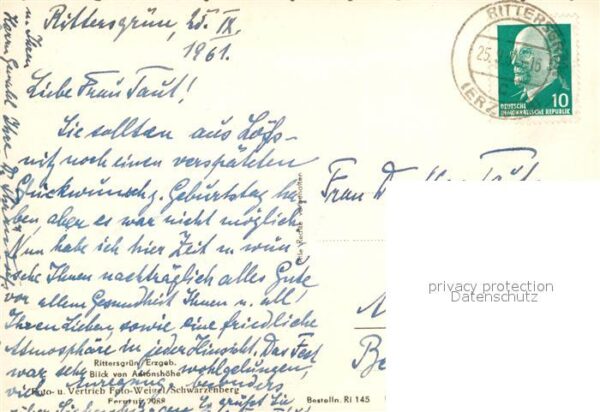 Rittersgrün, 25. IX.
1961.
Liebe Frau Taut!
Sie sollten aus Löß-
nitz noch einen verspäteten
Glückwunsch z. Geburtstag ha-
ben, aber es war nicht möglich.
Nun habe ich hier Zeit u. wün-
sche Ihnen nachträglich alles Gute
vor allem Gesundheit Ihnen u. all'
Ihren Lieben, sowie eine friedliche
Atmosphäre in jeder Hinsicht. Das Fest
war sehr wohlgelungen,
viele Anregung, besonders
Es grüßt Sie
u. Ihren
Herrn Gemahl Ihre
RITTERSGRÜN
25.
(ERZ
10
DEUTSCHE
DEMOKRATISCHE REPUBLIK
Frau
Rittersgrün Erzgeb.
Blick von Aaronshöhe
Foto- u. Vertrieb Foto-Weigel/Schwarzenberg
Fernruf 2989
Bestelln. RI 145
privacy protection
Datenschutz